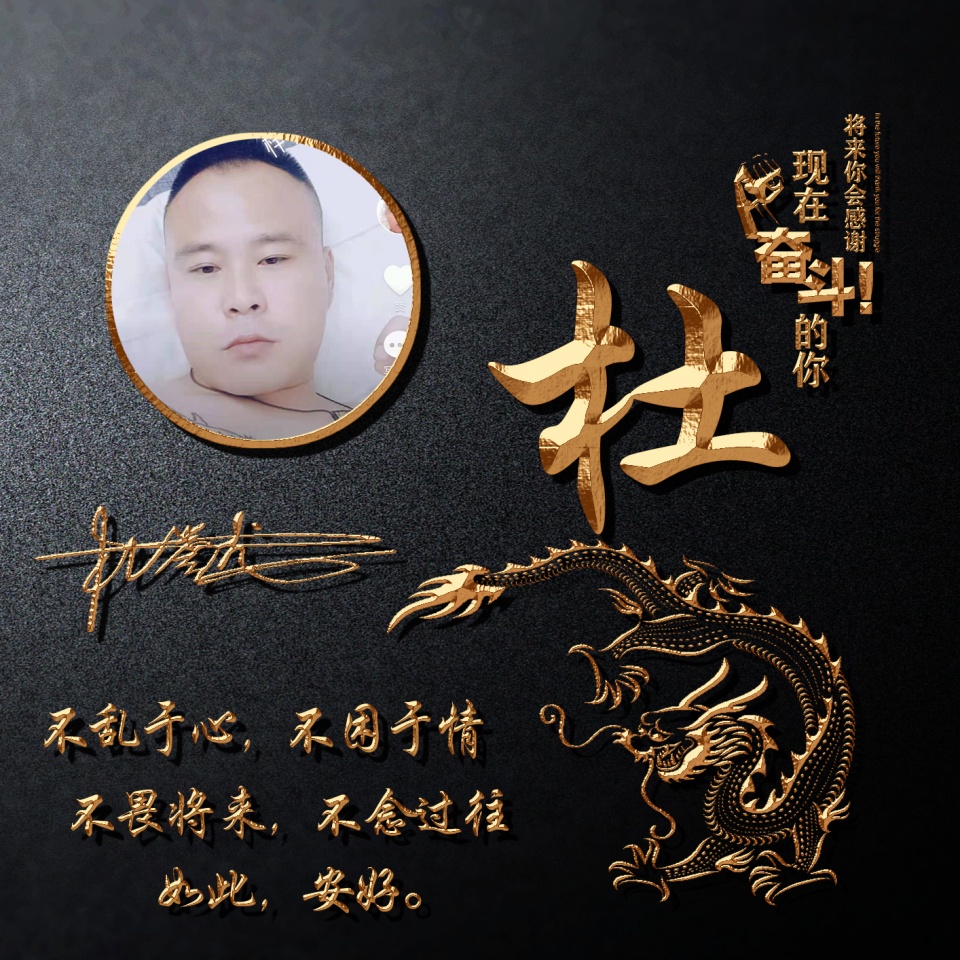 将来你会感谢
现在
奋斗!
的你
In the future you will thank you for the struggle
杜
不乱于心，不困于情
不畏将来，不念过往
如此，安好。